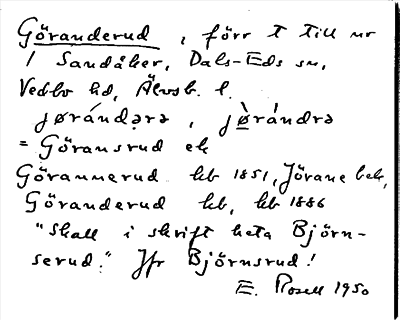 Göranderud, förr t till nr
1 Sandåker, Dals-Eds sn,
Vedbo hd, Älvsb. l.
jørándərə, jø̀rándrə
= Göransrud ek
Görannerud kb 1851, Jörane bek,
Göranderud kb, kb 1886
"Skall i skrift heta Björn-
serud." Jfr Björnsrud!
E. Rosell 1950